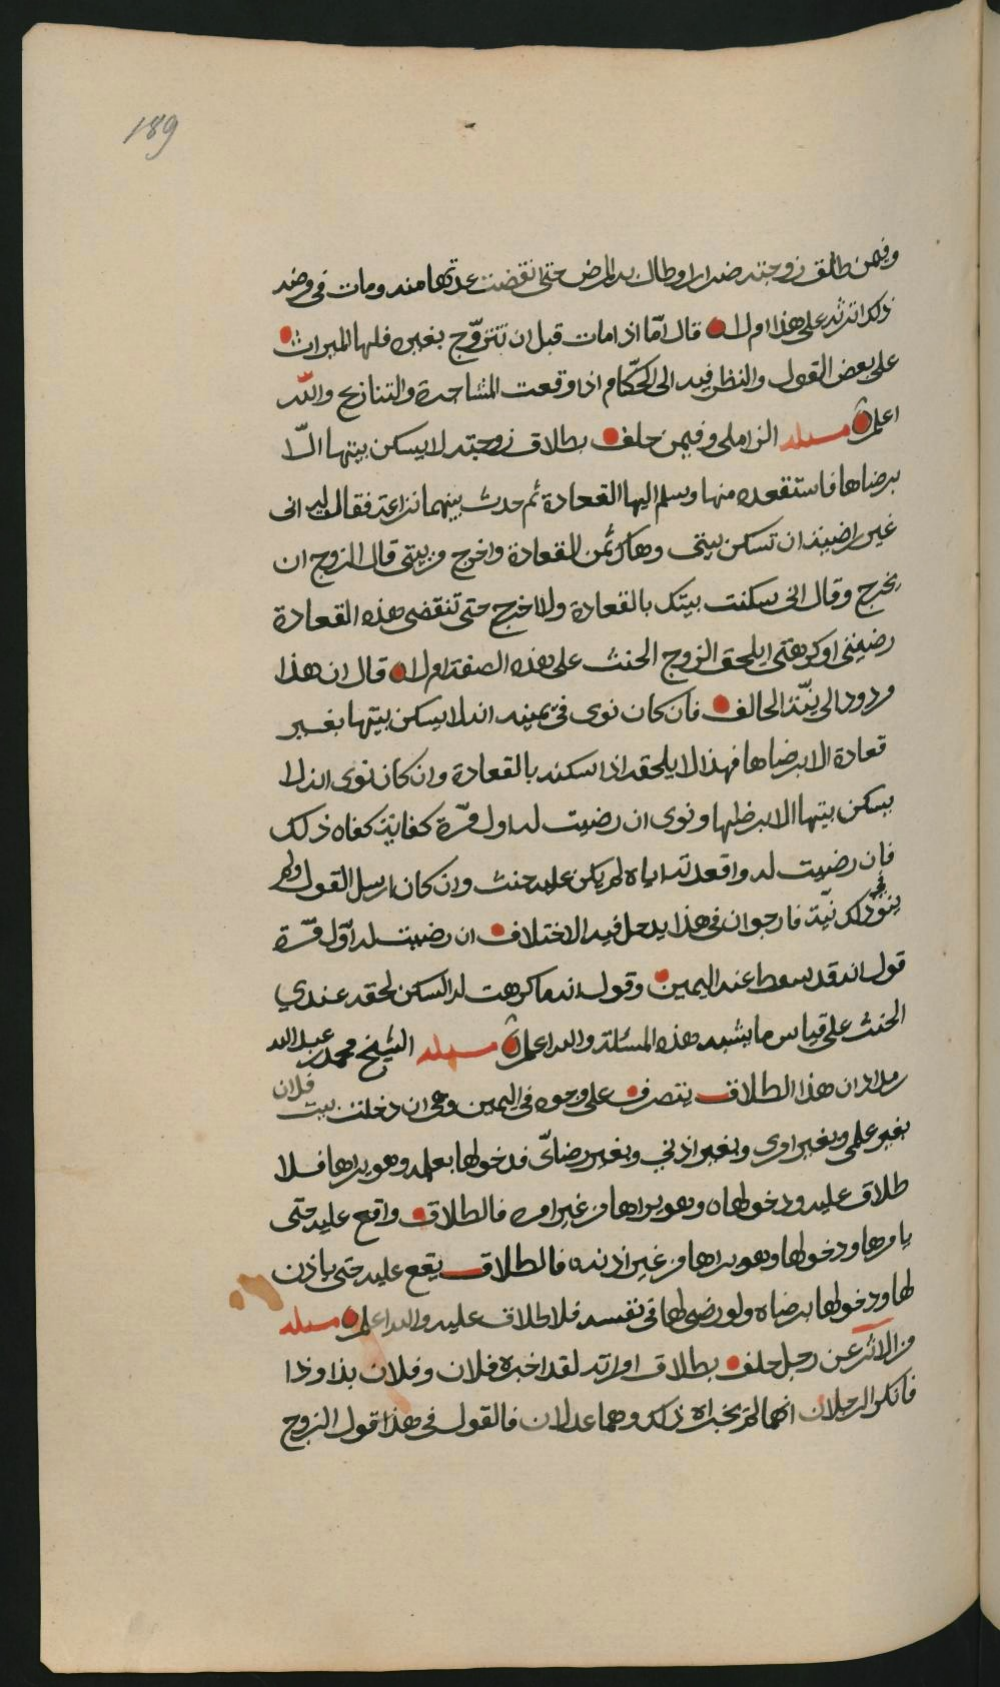 189
وفيمن طلق زوجته ضرارا وطال به المرض حتى انقضت عدتها منه ومات في مرضه
ذلك اترثه على هذا ام لا قال امّا اذا مات قبل ان تتزوّج بغيره فلها الميراث
على بعض القول والنظر فيه الى الحكّام اذا وقعت المشاححة والتنازع والله
اعلم مسئله الزاملي وفيمن حلف بطلاق زوجته لا يسكن بيتها الّا
برضاها فاستقعده منها وسلم اليها القعادة ثم حدث بينهما نزاعة فقالت له اني
غير راضية ان تسكن بيتي وهاك ثمن القعادة واخرج من بيتي قال الزوج ان
يخرج وقال اني سكنت بيتك بالقعادة ولا اخرج حتى تنقضي هذه القعادة
رضيتي او كرهتي ايلحق الزوج الحنث على هذه الصفة ام لا قال ان هذا
مردود الى نيّة الحالف فان كان نوى في يمينه انه لا يسكن بيتها بغير
قعادة الا برضاها فهذا لا يلحقه اذا سكنه بالقعادة وان كان نوى انه لا
يسكن بيتها الا برضاها ونوى ان رضيت له اول مرّة كفاية كفاه ذلك
فان رضيت له واقعدته اياه لم يكن عليه حنث وان كان ارسل القول ولم
ينو في ذلك نيّة فارجو ان في هذا يدخل فيه الاختلاف ان رضيت له اوّل مرّة
قول انه قد سقط عنه اليمين وقول انه ما كرهت له السكن لحقه عندي
الحنث على قياس ما يشبه هذه المسئلة والله اعلم مسئله الشيخ محمد بن عبدالله
بن مداد ان هذا الطلاق يتصرف على وجوه في اليمين وهي ان دخلت بيت فلان
بغير علمي وبغير امري وبغير اذني وبغير رضائي فدخولها بعلمه وهو يراها فلا
طلاق عليه ودخولها وهو يراها من غير امره فالطلاق واقع عليه حتى
يامرها ودخولها وهو يراها من غير اذنه فالطلاق يقع عليه حتى ياذن
لها ودخولها برضاه ولو رضي لها في نفسه فلا طلاق عليه والله اعلم مسئله
من الاثر عن رجل حلف بطلاق امراته لقد اخبره فلان وفلان بذا وذا
فانكر الرجلان انهما لم يخبراه ذلك وهما عدلان فالقول في هذا قول الزوج